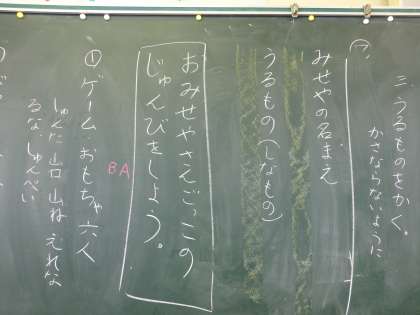 三、うるものをかく。
かさならないように
みせやの名まえ
うるもの(しなもの)
おみせやさんごっこの
じゅんびをしよう。
BA
①ゲーム、おもちゃ六人
しゅんた 山口 山ね えれな
るな しゅんぺい